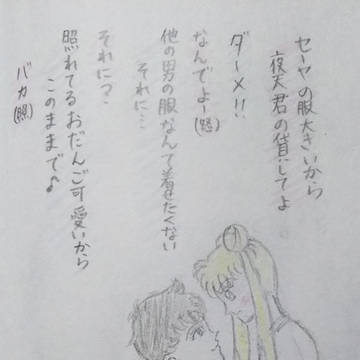 セーヤの服大きいから
夜天君の貸してよ
ダーメ!!
なんでよー(怒)
他の男の服なんて着せたくない
それに…
それに?
照れてるおだんご可愛いから
このままでよ
バカ(照)